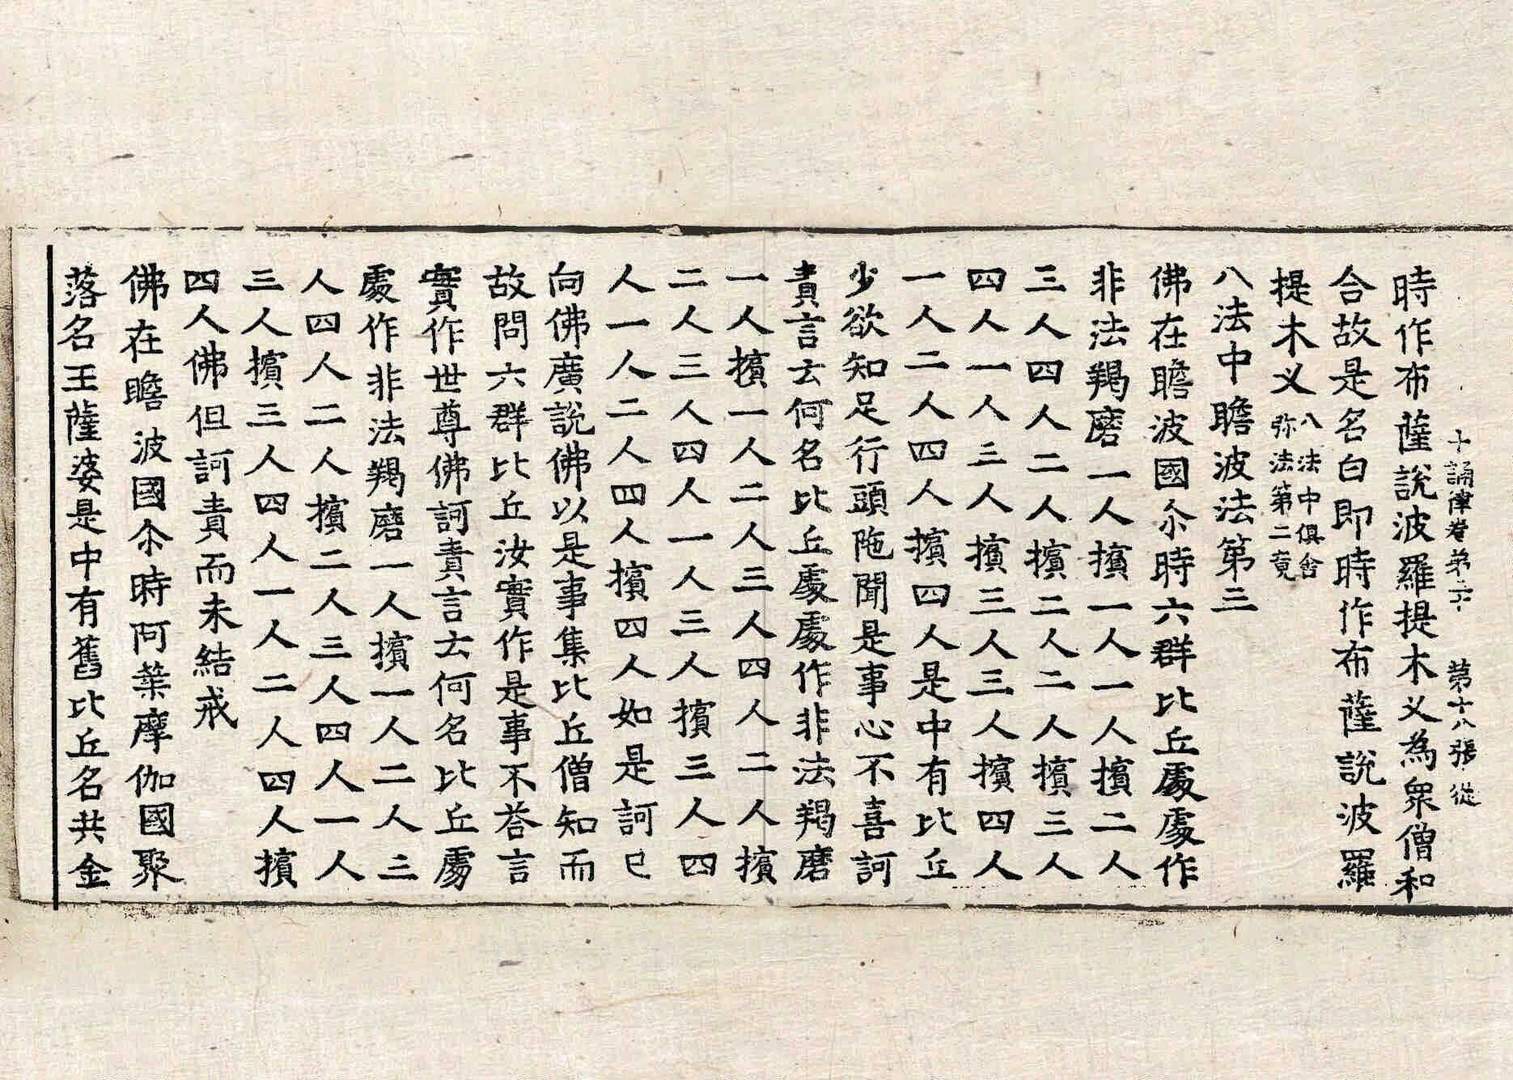 十誦律卷第三十 第十八張 從
時作布薩說波羅提木叉為衆僧和
合故是名白即時作布薩說波羅
提木叉八法中俱舍弥法第二竟
八法中瞻波法第三
佛在瞻波國尒時六群比丘處處作
非法羯磨一人擯一人一人擯二人
三人四人二人擯二人二人擯三人
四人一人三人擯三人三人擯四人
一人二人四人擯四人是中有比丘
少欲知足行頭陁聞是事心不喜訶
責言云何名比丘處處作非法羯磨
一人擯一人二人三人四人二人擯
二人三人四人一人三人擯三人四
人一人二人四人擯四人如是訶已
向佛廣說佛以是事集比丘僧知而
故問六群比丘汝實作是事不荅言
實作世尊佛訶責言云何名比丘處
處作非法羯磨一人擯一人二人三
人四人二人擯二人三人四人一人
三人擯三人四人一人二人四人擯
四人佛但訶責而未結戒
佛在瞻波國尒時阿葉摩伽國聚
落名王薩婆是中有舊比丘名共金